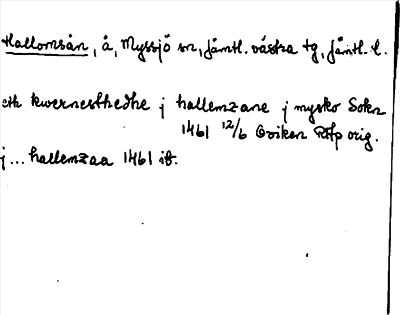 Hallomsån, å, Myssjö sn, Jämtl. västra tg, Jämtl. l.
eth kwernesthedhe j hallemzane j mysko Sokn
1461 12/6 Oviken RAp orig.
j... hallemzaa 1461 ib.